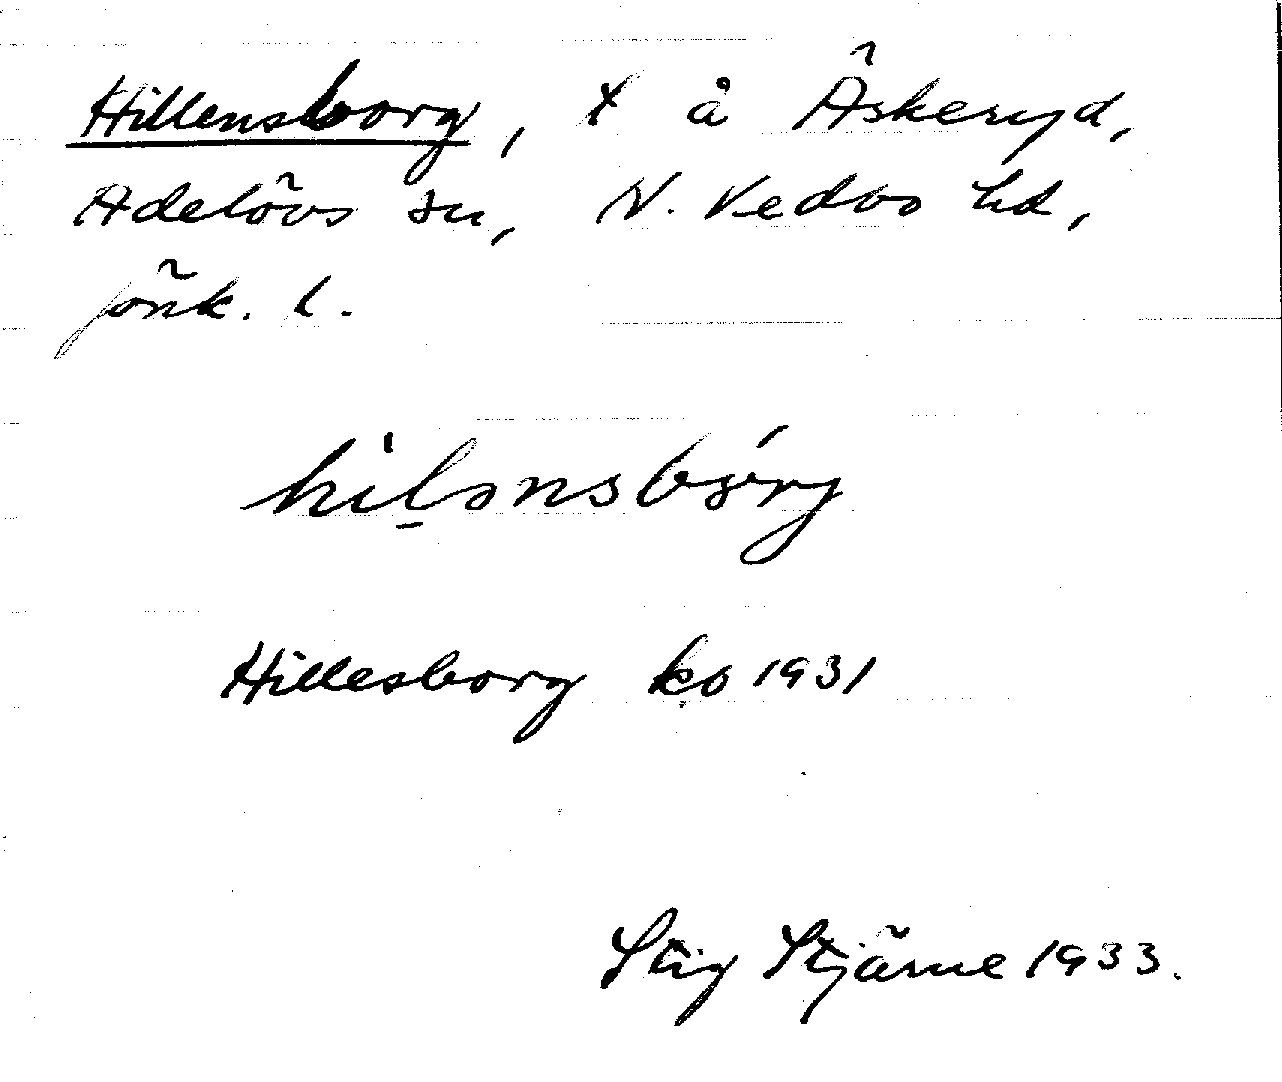 Hillensborg, x å Äskeryd,
Adelövs sn, N. Vedbo hd,
Jönk. l.
hilənsbórj
Hillesborg ko 1931
Stig Stjärne 1933.